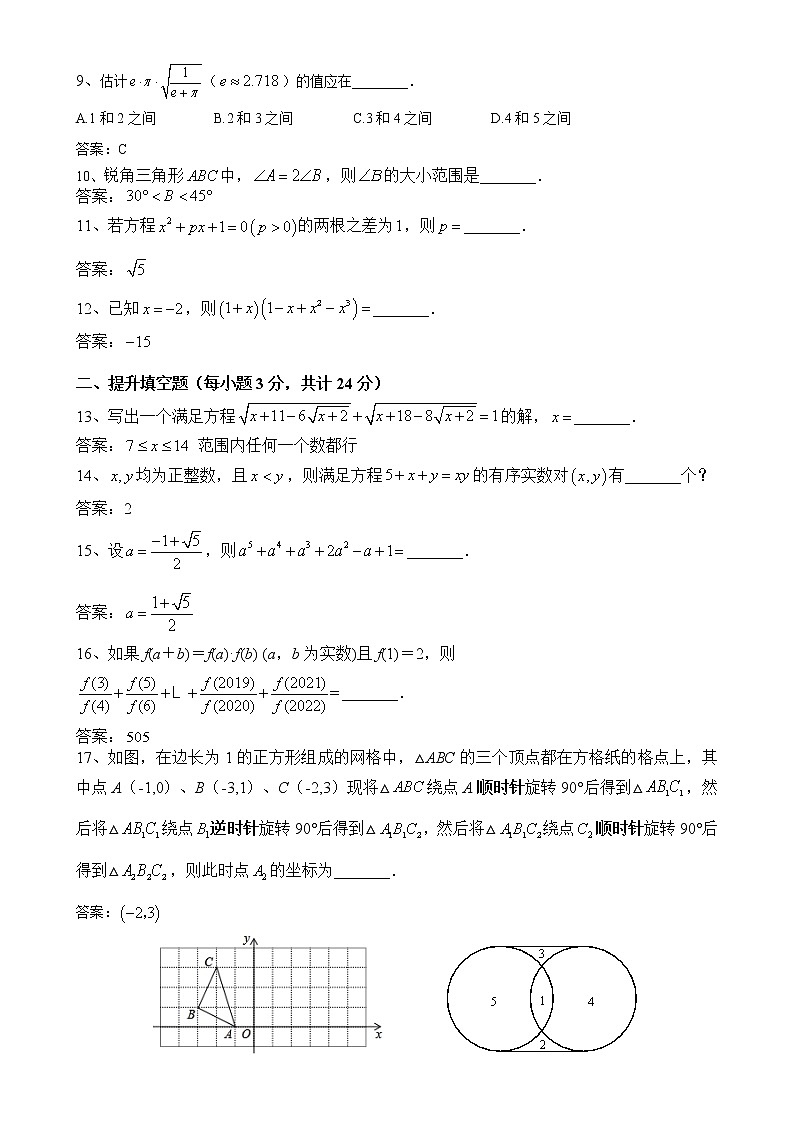 9、估计 e·π·√(1/(e+π))（e≈2.718）的值应在_______.
A.1 和 2 之间 B.2 和 3 之间 C.3 和 4 之间 D.4 和 5 之间
答案：C
10、锐角三角形 ABC 中，∠A = 2∠B，则∠B 的大小范围是_______.
答案：30° < B < 45°
11、若方程 x² + px + 1 = 0 (p > 0) 的两根之差为 1，则 p = _______.
答案：√5
12、已知 x = −2，则 (1 + x)(1 − x + x² − x³) = _______.
答案：−15
二、提升填空题（每小题 3 分，共计 24 分）
13、写出一个满足方程 √(x+11−6√(x+2)) + √(x+18−8√(x+2)) = 1 的解，x = _______.
答案：7 ≤ x ≤ 14 范围内任何一个数都行
14、x, y 均为正整数，且 x < y，则满足方程 5 + x + y = xy 的有序实数对 (x, y) 有_______个？
答案：2
15、设 a = (−1+√5)/2，则 a⁵ + a⁴ + a³ + 2a² − a + 1 = _______.
答案：a = (1+√5)/2
16、如果 f(a＋b)＝f(a)·f(b) (a，b 为实数)且 f(1)＝2，则
f(3)/f(4) + f(5)/f(6) + L + f(2019)/f(2020) + f(2021)/f(2022) = _______.
答案：505
17、如图，在边长为 1 的正方形组成的网格中，△ABC 的三个顶点都在方格纸的格点上，其
中点 A（-1,0）、B（-3,1）、C（-2,3）现将△ABC 绕点 A 顺时针旋转 90°后得到△AB₁C₁，然
后将△AB₁C₁绕点 B₁逆时针旋转 90°后得到△A₁B₁C₂，然后将△A₁B₁C₂绕点 C₂顺时针旋转 90°后
得到△A₂B₂C₂，则此时点 A₂的坐标为_______.
答案：(−2,3)
y
C
B
A O x
3
5 1 4
2